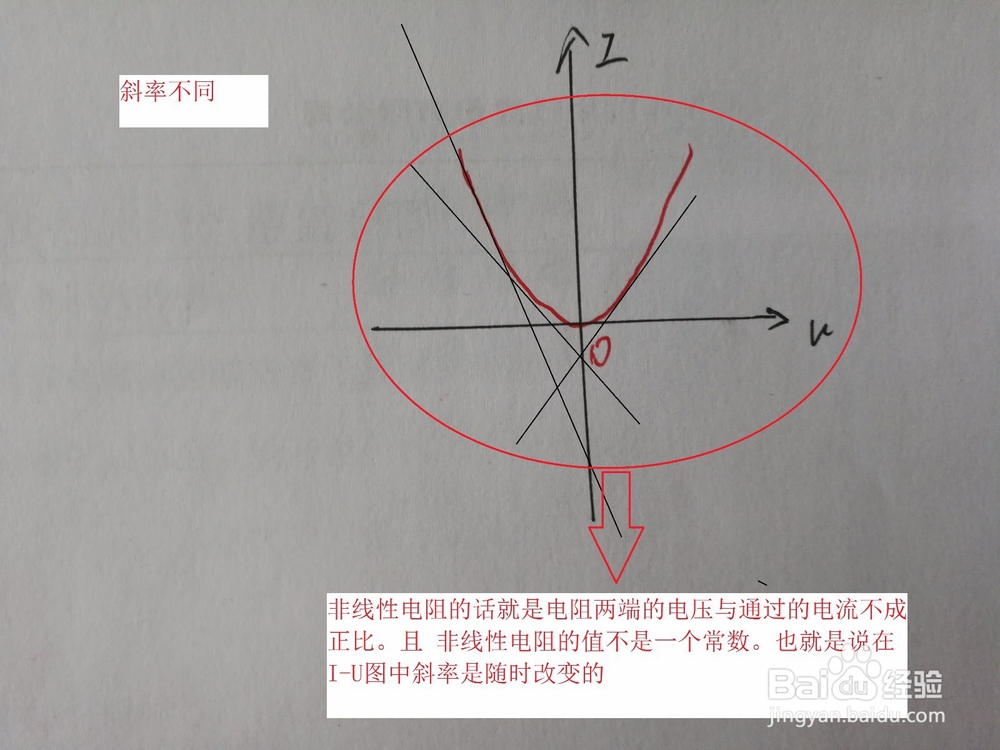 I
斜率不同
u
O
非线性电阻的话就是电阻两端的电压与通过的电流不成
正比。且 非线性电阻的值不是一个常数。也就是说在
I-U图中斜率是随时改变的
Baidu 经验
jingyan.baidu.com